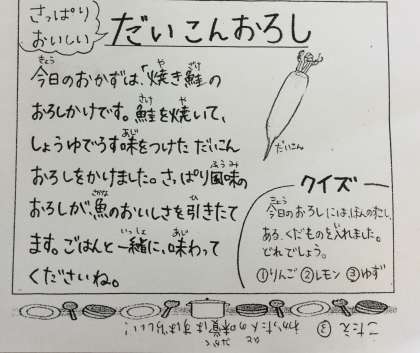 さっぱり
おいしい
だいこんおろし
今日のおかずは、「焼き鮭の
おろしかけです。鮭を焼いて、
しょうゆでうす味をつけた だいこん
おろしをかけました。さっぱり風味の
おろしが、魚のおいしさを引きたて
ます。ごはんと一緒に、味わって
くださいね。
だいこん
クイズ
今日のおろしには、ほんのすこし、
ある、くだものを入れました。
どれでしょう。
①りんご ②レモン ③ゆず
こたえ ③